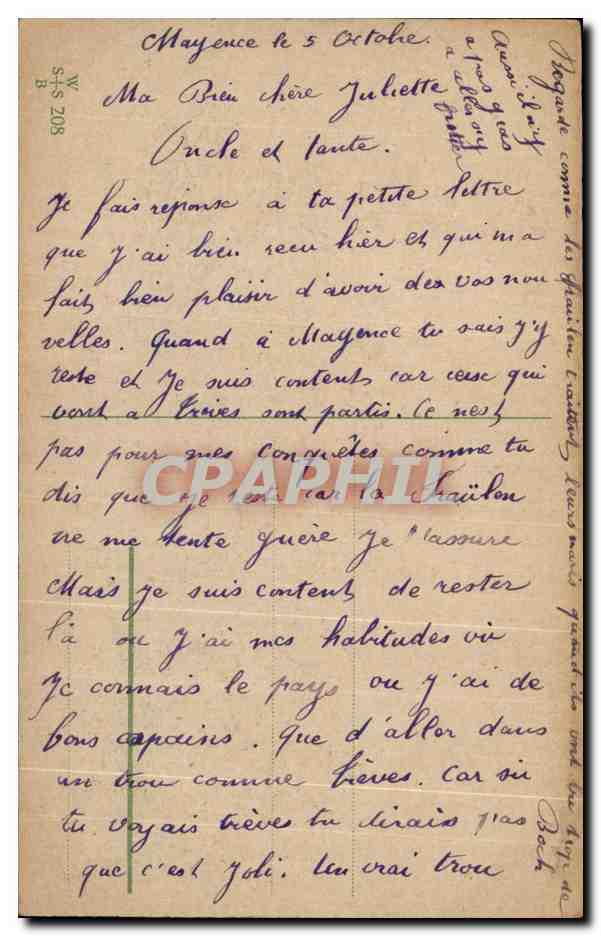 Mayence le 5 Octobre.
Ma Bien chère Juliette
Oncle et tante.
Je fais reponse à ta petite lettre
que J'ai bien recu hier et qui m a
fait bien plaisir d'avoir des vos nou
velles. Quand à Mayence tu sais j'y
reste et Je suis content car ceux qui
vont a Trèves sont partis. Ce nest
pas pour mes conquêtes comme tu
dis que je reste car la Fraülen
ne me tente guère Je t'assure
Mais je suis content de rester
là ou J'ai mes habitudes ou
Je connais le pays ou J'ai de
bons copains. Que d'aller dans
un trou comme Trèves. Car si
tu voyais trèves tu dirais pas
que c'est Joli. Un vrai trou
Aussi il n'y
a pas gras
a aller s'y
frotter
Regarde comme les Fraülen traitent leurs maris quand ils ont bu trop de
Bock
W
S+S 208
B
CPAPHIL